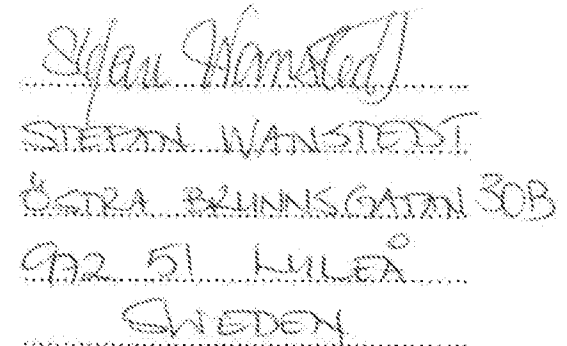 Stefan Wanstedt
STEFAN WANSTEDT
ÖSTRA BRUNNSGATAN 30B
972 51 LULEÅ
SWEDEN